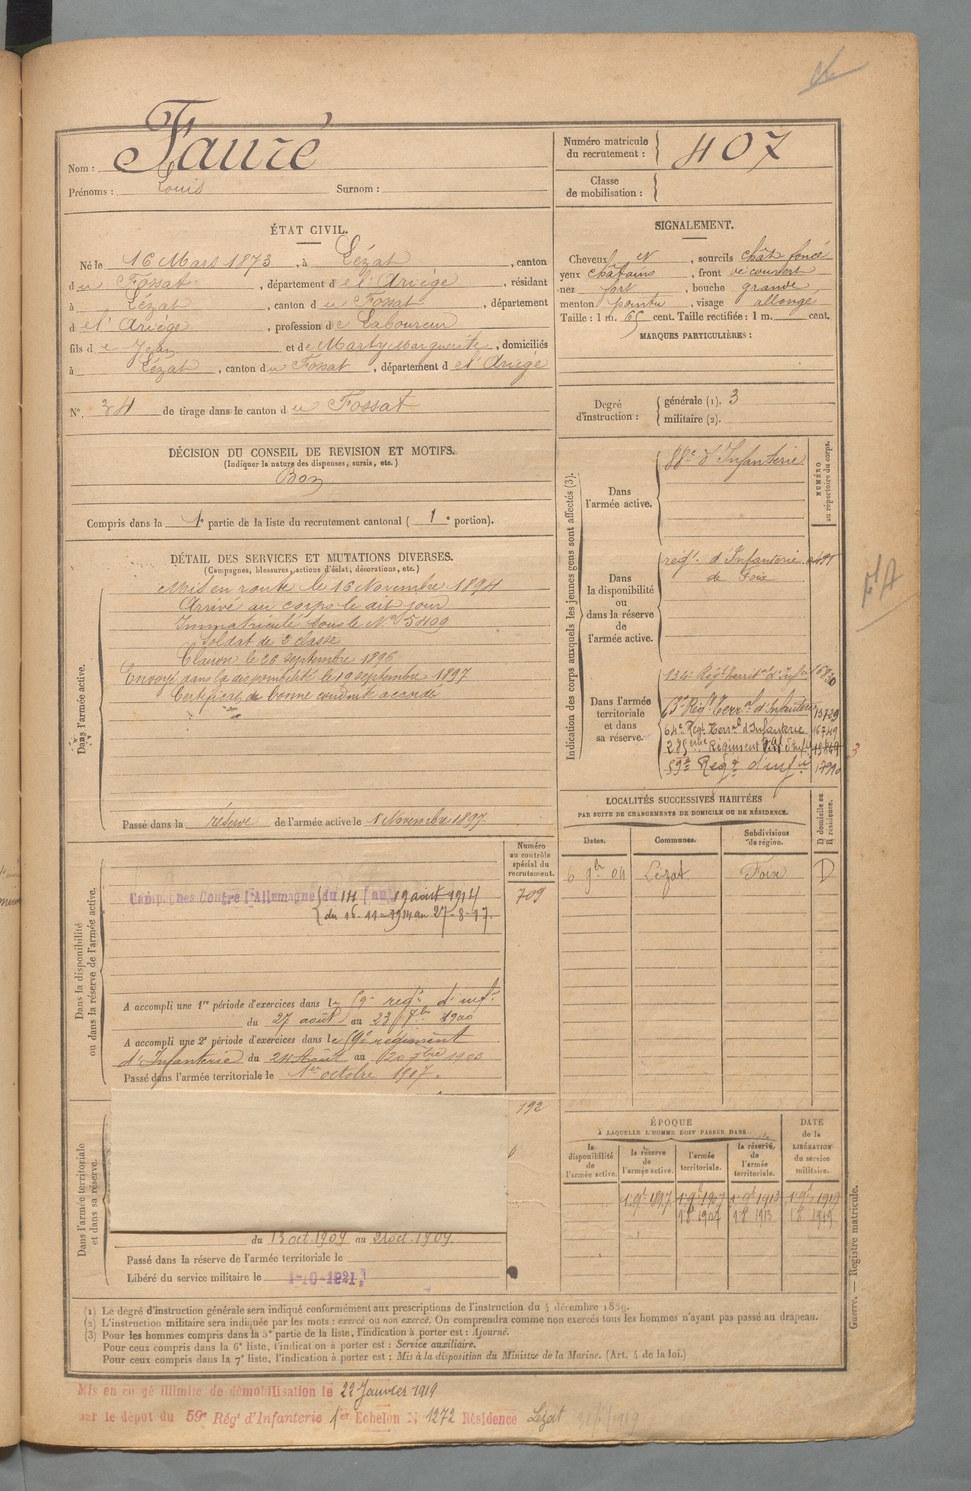 Nom : Fauré
Prénoms : Louis Surnom :
Numéro matricule du recrutement : 407
Classe de mobilisation :
ÉTAT CIVIL.
Né le 16 Mars 1873, à Lézat, canton
du Fossat, département de l'Ariège, résidant
à Lézat, canton du Fossat, département
de l'Ariège, profession de Laboureur
fils de Jean et de Marty Marguerite, domiciliés
à Lézat, canton du Fossat, département de l'Ariège
N° 34 de tirage dans le canton du Fossat
SIGNALEMENT.
Cheveux et, sourcils chât. foncé
yeux châtains, front découvert
nez fort, bouche grande
menton pointu, visage allongé
Taille : 1 m. 65 cent. Taille rectifiée : 1 m. cent.
MARQUES PARTICULIÈRES :
Degré d'instruction : générale (1). 3
militaire (2).
DÉCISION DU CONSEIL DE REVISION ET MOTIFS.
(Indiquer la nature des dispenses, sursis, etc.)
Bon
Compris dans la 1e partie de la liste du recrutement cantonal (1e portion).
DÉTAIL DES SERVICES ET MUTATIONS DIVERSES.
(Campagnes, blessures, actions d'éclat, décorations, etc.)
Dans l'armée active.
Mis en route le 16 Novembre 1894
Arrivé au corps le dit jour
Immatriculé sous le N° 5409
Soldat de 2 classe
Clairon le 26 septembre 1896
Envoyé dans la disponibilité le 19 septembre 1897
Certificat de bonne conduite accordé
Passé dans la réserve de l'armée active le 1 Novembre 1897.
Indication des corps auxquels les jeunes gens sont affectés (3).
NUMÉRO au répertoire du corps.
Dans l'armée active.
88e d'Infanterie
Dans la disponibilité ou dans la réserve de l'armée active.
régt. d'Infanterie
de Foix
Dans l'armée territoriale et dans sa réserve.
134e Régt territ. d'Inf.
Régt Terral d'Infanterie 13729
64e Regt Terral d'Infanterie 16749
Régiment
59e Regt d'infie
LOCALITÉS SUCCESSIVES HABITÉES
PAR SUITE DE CHANGEMENTS DE DOMICILE OU DE RÉSIDENCE.
Dates. Communes. Subdivisions de région. D domicile ou R résidence.
6 9bre 04 Lézat Foix D
Dans la disponibilité ou dans la réserve de l'armée active.
Numéro au contrôle spécial du recrutement.
709
Campagnes Contre l'Allemagne du 14 au 19 août 1914
du 11-11-1914 au 27-8-17.
A accompli une 1re période d'exercices dans le 59e régt. d'inf.
du 27 août au 23 7bre 1900
A accompli une 2e période d'exercices dans le 59e régiment
d'Infanterie du 24 Août au
Passé dans l'armée territoriale le 1er octobre 1907.
192
Dans l'armée territoriale et dans sa réserve.
du 13 oct. 1909 au 21 oct. 1909.
Passé dans la réserve de l'armée territoriale le
Libéré du service militaire le 1-10-1921
ÉPOQUE
À LAQUELLE L'HOMME DOIT PASSER DANS
la disponibilité de l'armée active.
la réserve de l'armée active.
l'armée territoriale.
la réserve de l'armée territoriale.
DATE de la LIBÉRATION du service militaire.
1 9bre 1897 1 9bre 1907 1 9bre 1913 1 9bre 1919
1 8bre 1907 1 8bre 1913 1 8bre 1919
(1) Le degré d'instruction générale sera indiqué conformément aux prescriptions de l'instruction du 4 décembre 1889.
(2) L'instruction militaire sera indiquée par les mots : exercé ou non exercé. On comprendra comme non exercés tous les hommes n'ayant pas passé au drapeau.
(3) Pour les hommes compris dans la 5e partie de la liste, l'indication à porter est : Ajourné.
Pour ceux compris dans la 6e liste, l'indication à porter est : Service auxiliaire.
Pour ceux compris dans la 7e liste, l'indication à porter est : Mis à la disposition du Ministre de la Marine. (Art. 4 de la loi.)
Guerre. — Registre matricule.
Mis en congé illimité de démobilisation le 22 Janvier 1919
par le dépôt du 59e Régt d'Infanterie 1er Echelon N° 1272 Résidence Lézat